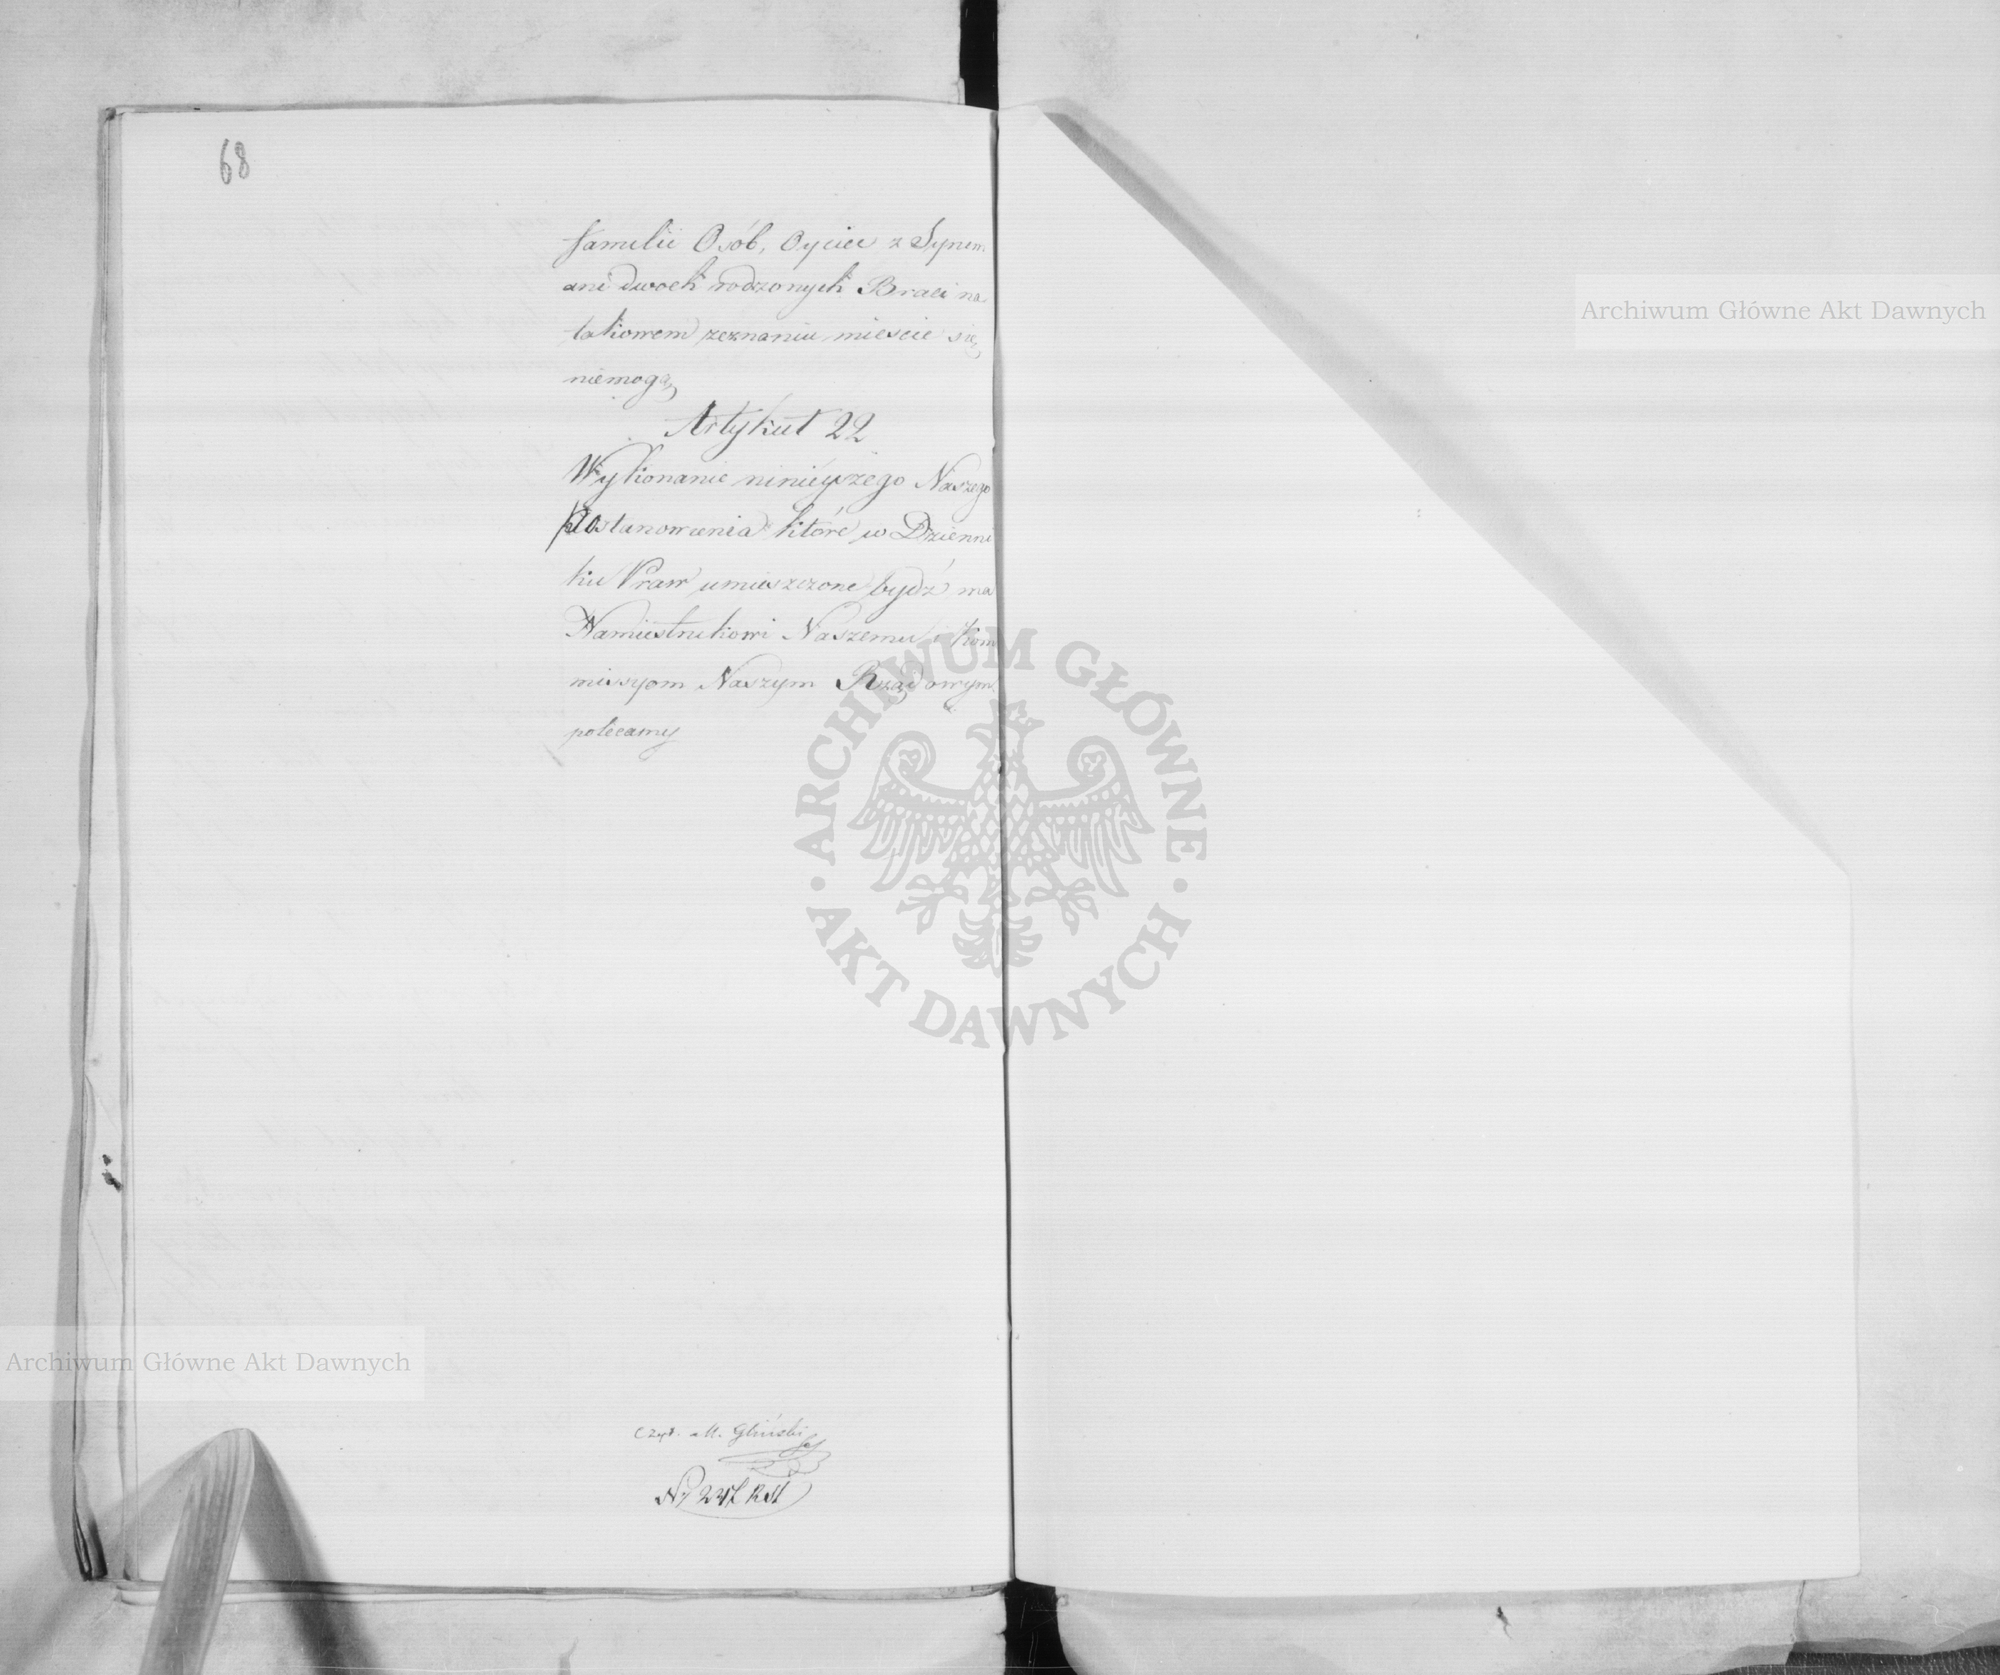 68
familii Osób, Oyciec z Synem
ani dwoch rodzonych Braci na
takowem zeznaniu mieście się
niemogą
Artykuł 22
Wykonanie ninieyszego Naszego
Postanowienia które w Dzienni
ku Praw umieszczone bydź ma
Namiestnikowi Naszemu i Kom
missyom Naszym Rządowym
polecamy
Czyt. M. Gliński
Archiwum Główne Akt Dawnych
Archiwum Główne Akt Dawnych
ARCHIWUM GŁÓWNE AKT DAWNYCH